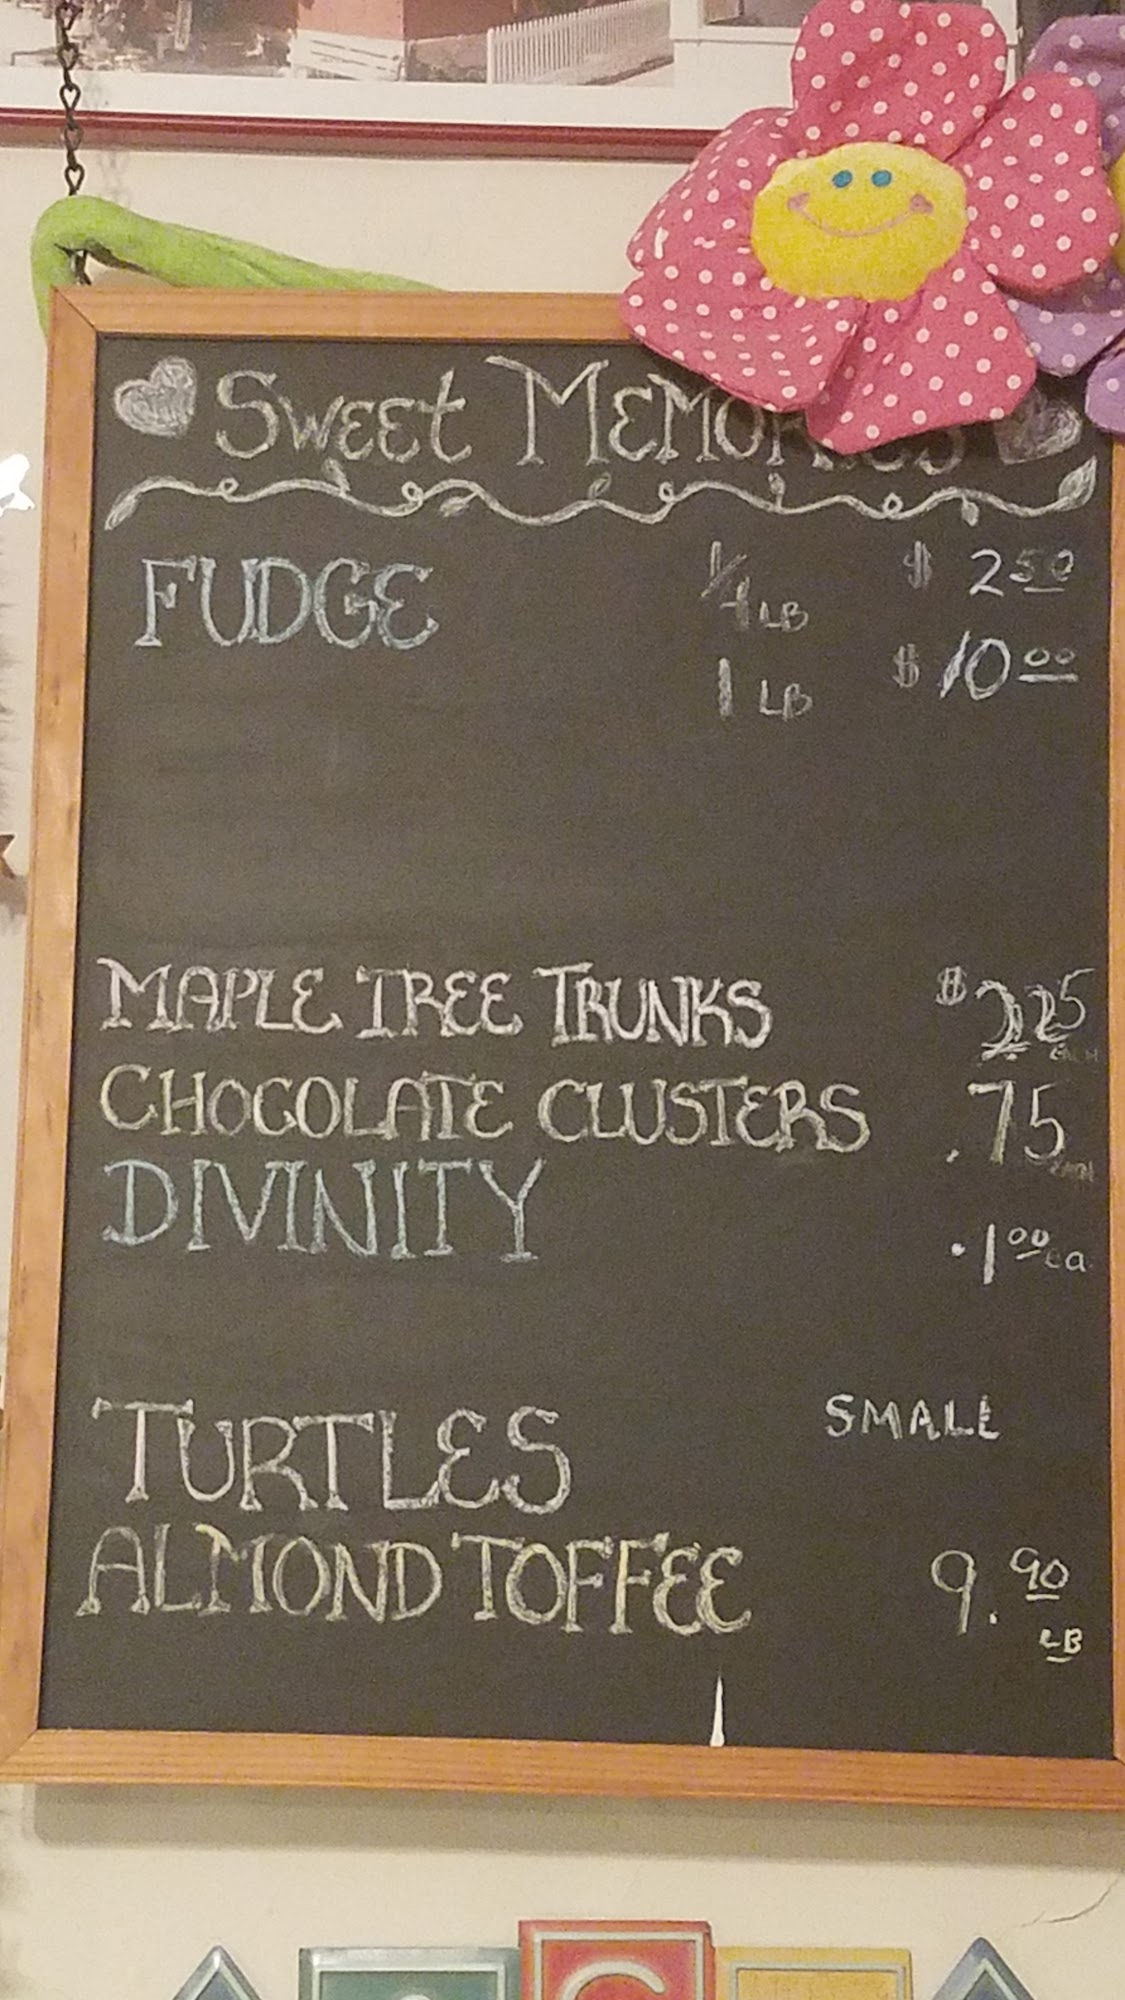 SWEET MEMORIES
FUDGE 1/4 LB $ 2.50
1 LB $10.00
MAPLE TREE TRUNKS $2.25 EACH
CHOCOLATE CLUSTERS .75 EACH
DIVINITY .1.00 ea
TURTLES SMALL
ALMOND TOFFEE 9.90
LB